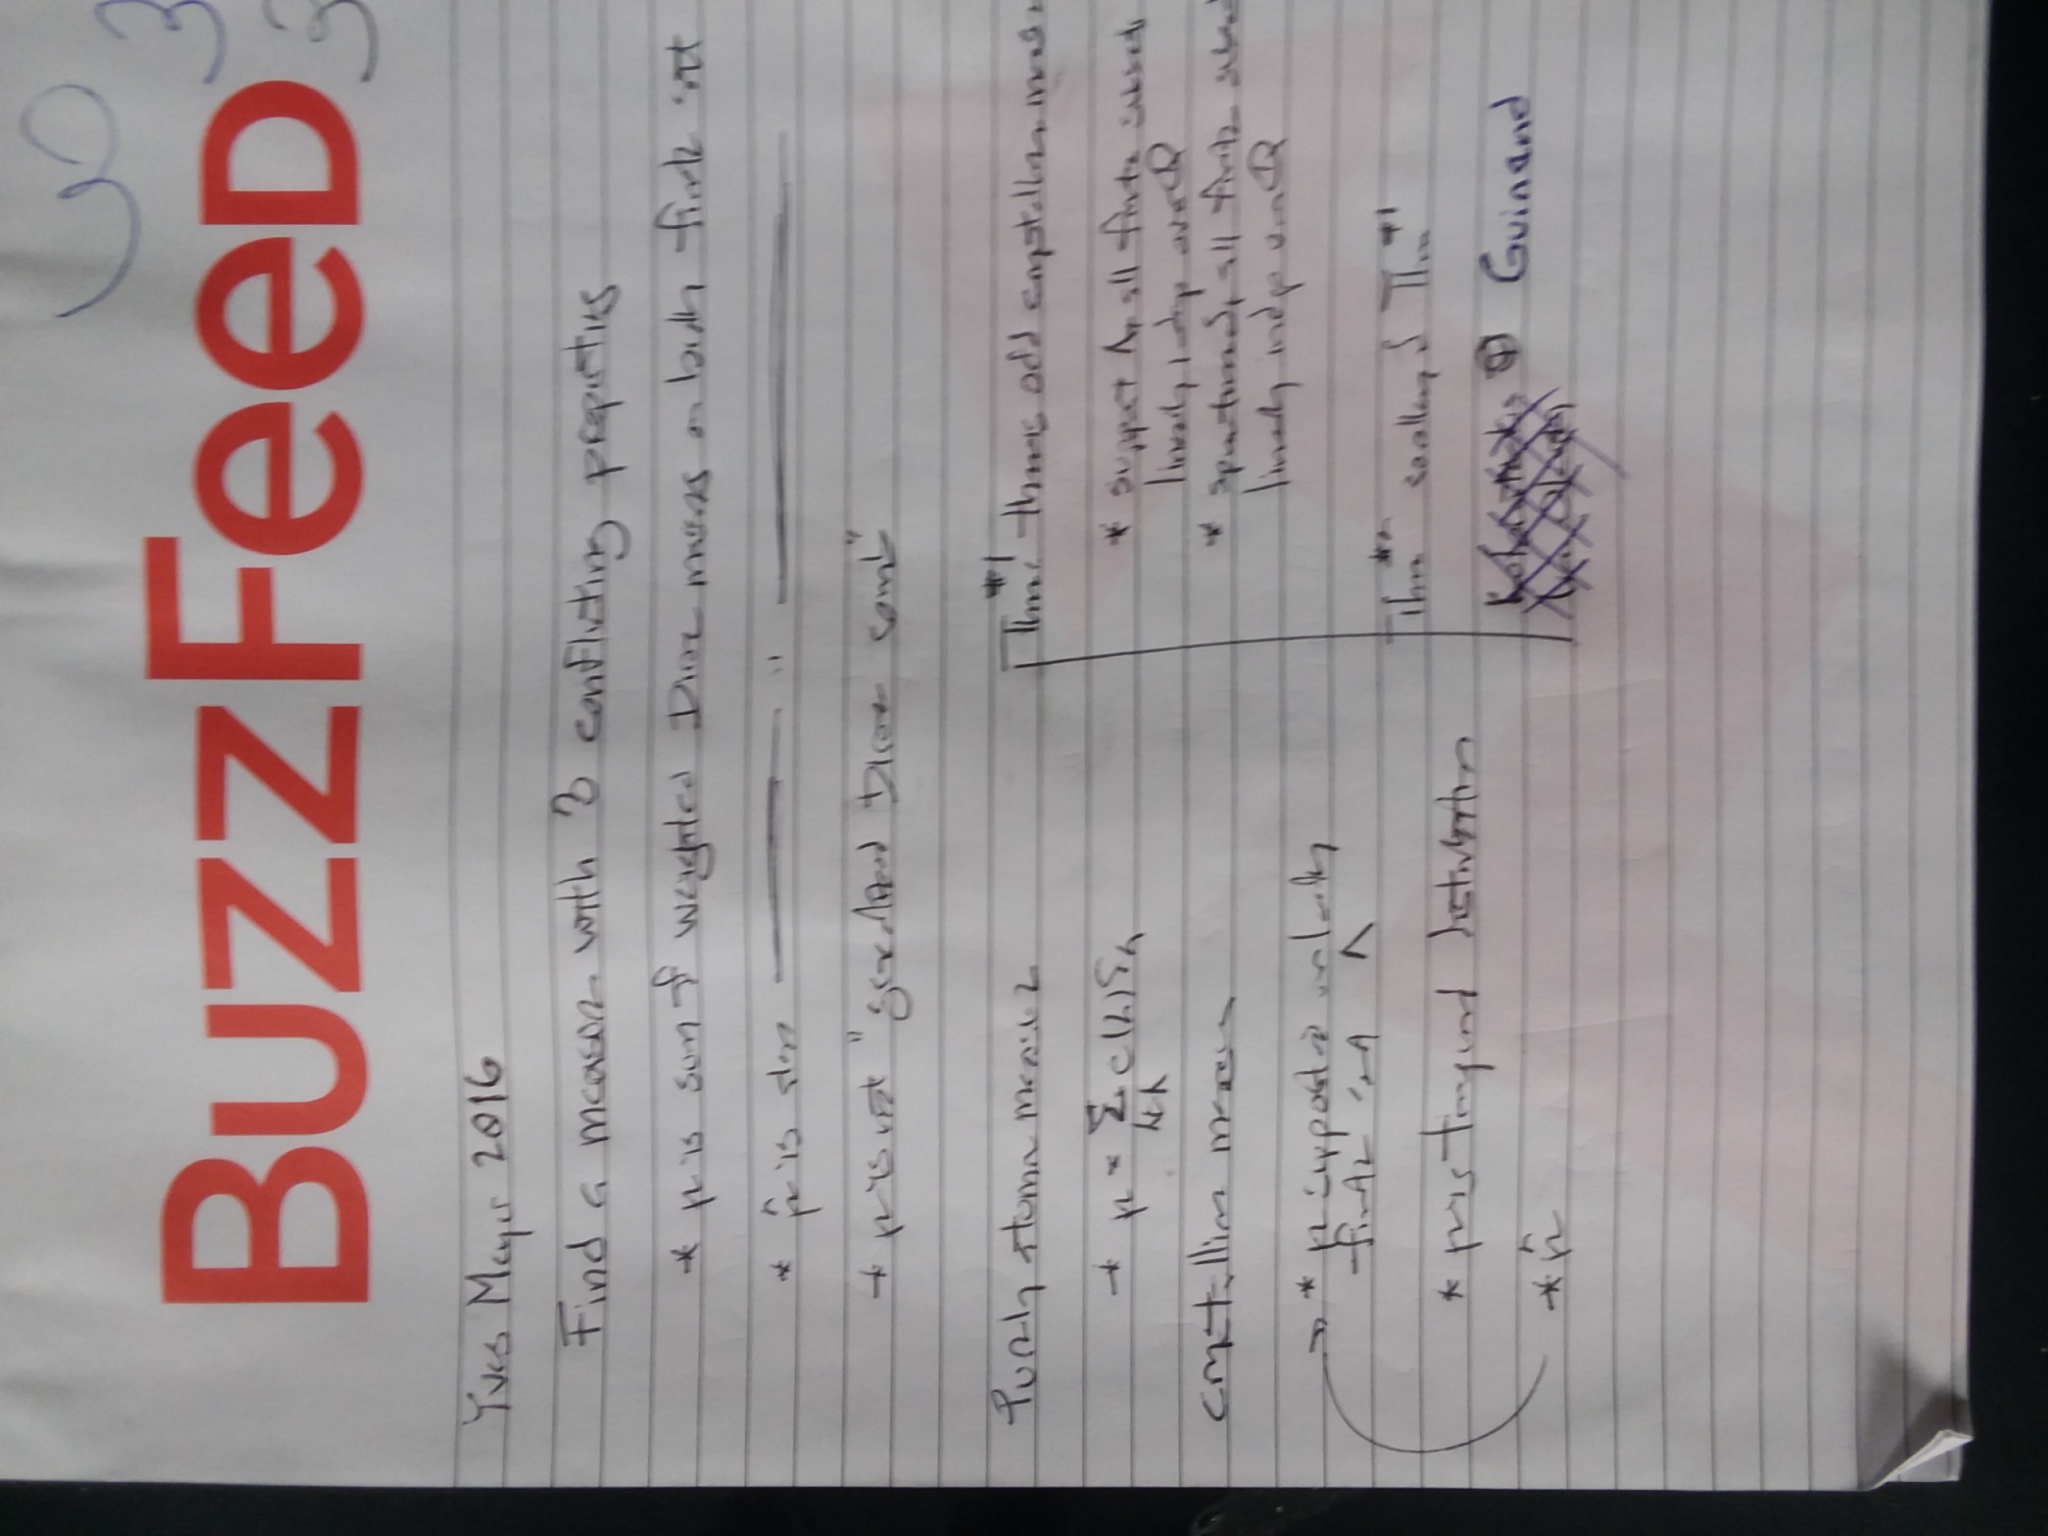 BUZZFEED
Yves Meyer 2016
Find a measure with 3 conflicting properties
* μ is sum of weighted Dirac on locally finite set
* μ̂ is also ——— " ———
* μ is not "generalized Dirac comb"
Purely atomic measure
* μ = Σ c(λ)δλ
λ∈Λ
crystalline measure
* μ supported on locally
finite set Λ
* μ is tempered distribution
* μ̂
Thm #1 there is odd crystalline
* support Λ, all finite subsets
linearly indep over Q
* spectrum S, all finite
linearly indep over Q
Thm corollary of Thm #1
Guinand